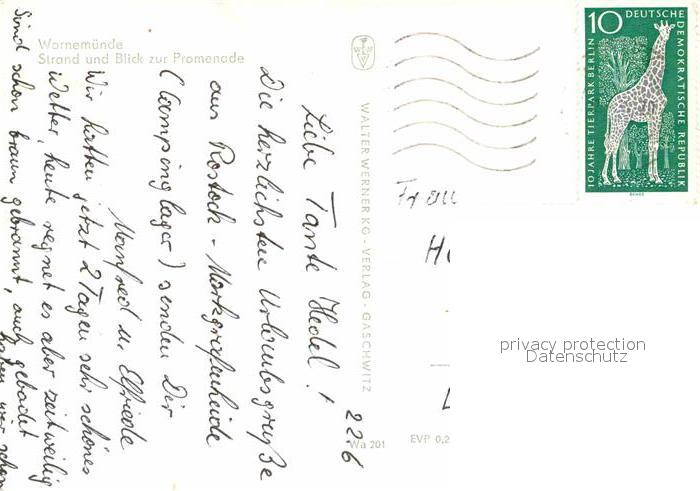 Warnemünde
Strand und Blick zur Promenade
22.6
Liebe Tante Hedel!
Die herzlichsten Urlaubsgrüße
aus Rostock - Markgrafenheide
(Campinglager) senden Dir
Manfred u. Elfriede
Wir hatten jetzt 2 Tagen sehr schönes
Wetter, heute regnet es aber zeitweilig
Sind schon braun gebrannt, auch gebadet
haben wir schon
WALTER WERNER KG - VERLAG - GASCHWITZ
Wa 201
EVP 0,2
Frau
10 DEUTSCHE
DEMOKRATISCHE REPUBLIK
10 JAHRE TIERPARK BERLIN
privacy protection
Datenschutz